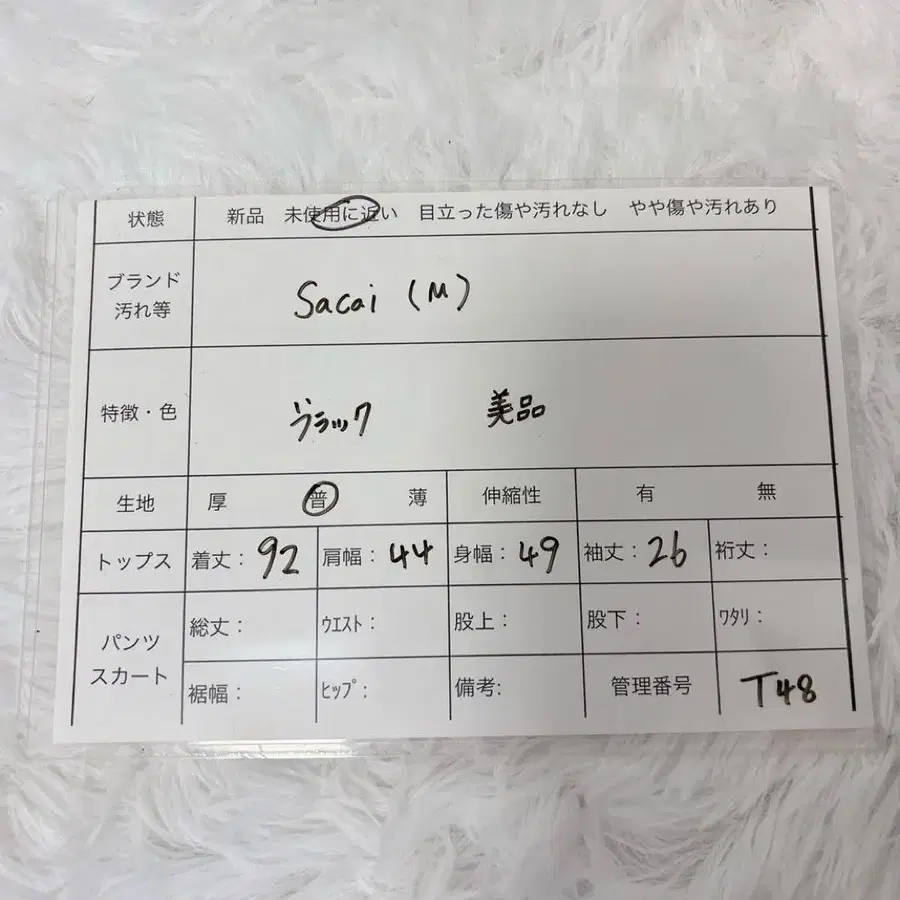 状態 新品 未使用に近い 目立った傷や汚れなし やや傷や汚れあり
ブランド
汚れ等
Sacai (M)
特徴・色 ブラック 美品
生地 厚 普 薄 伸縮性 有 無
トップス 着丈: 92 肩幅: 44 身幅: 49 袖丈: 26 裄丈:
パンツ
スカート
総丈: ｳｴｽﾄ: 股上: 股下: ﾜﾀﾘ:
裾幅: ﾋｯﾌﾟ: 備考: 管理番号 T48